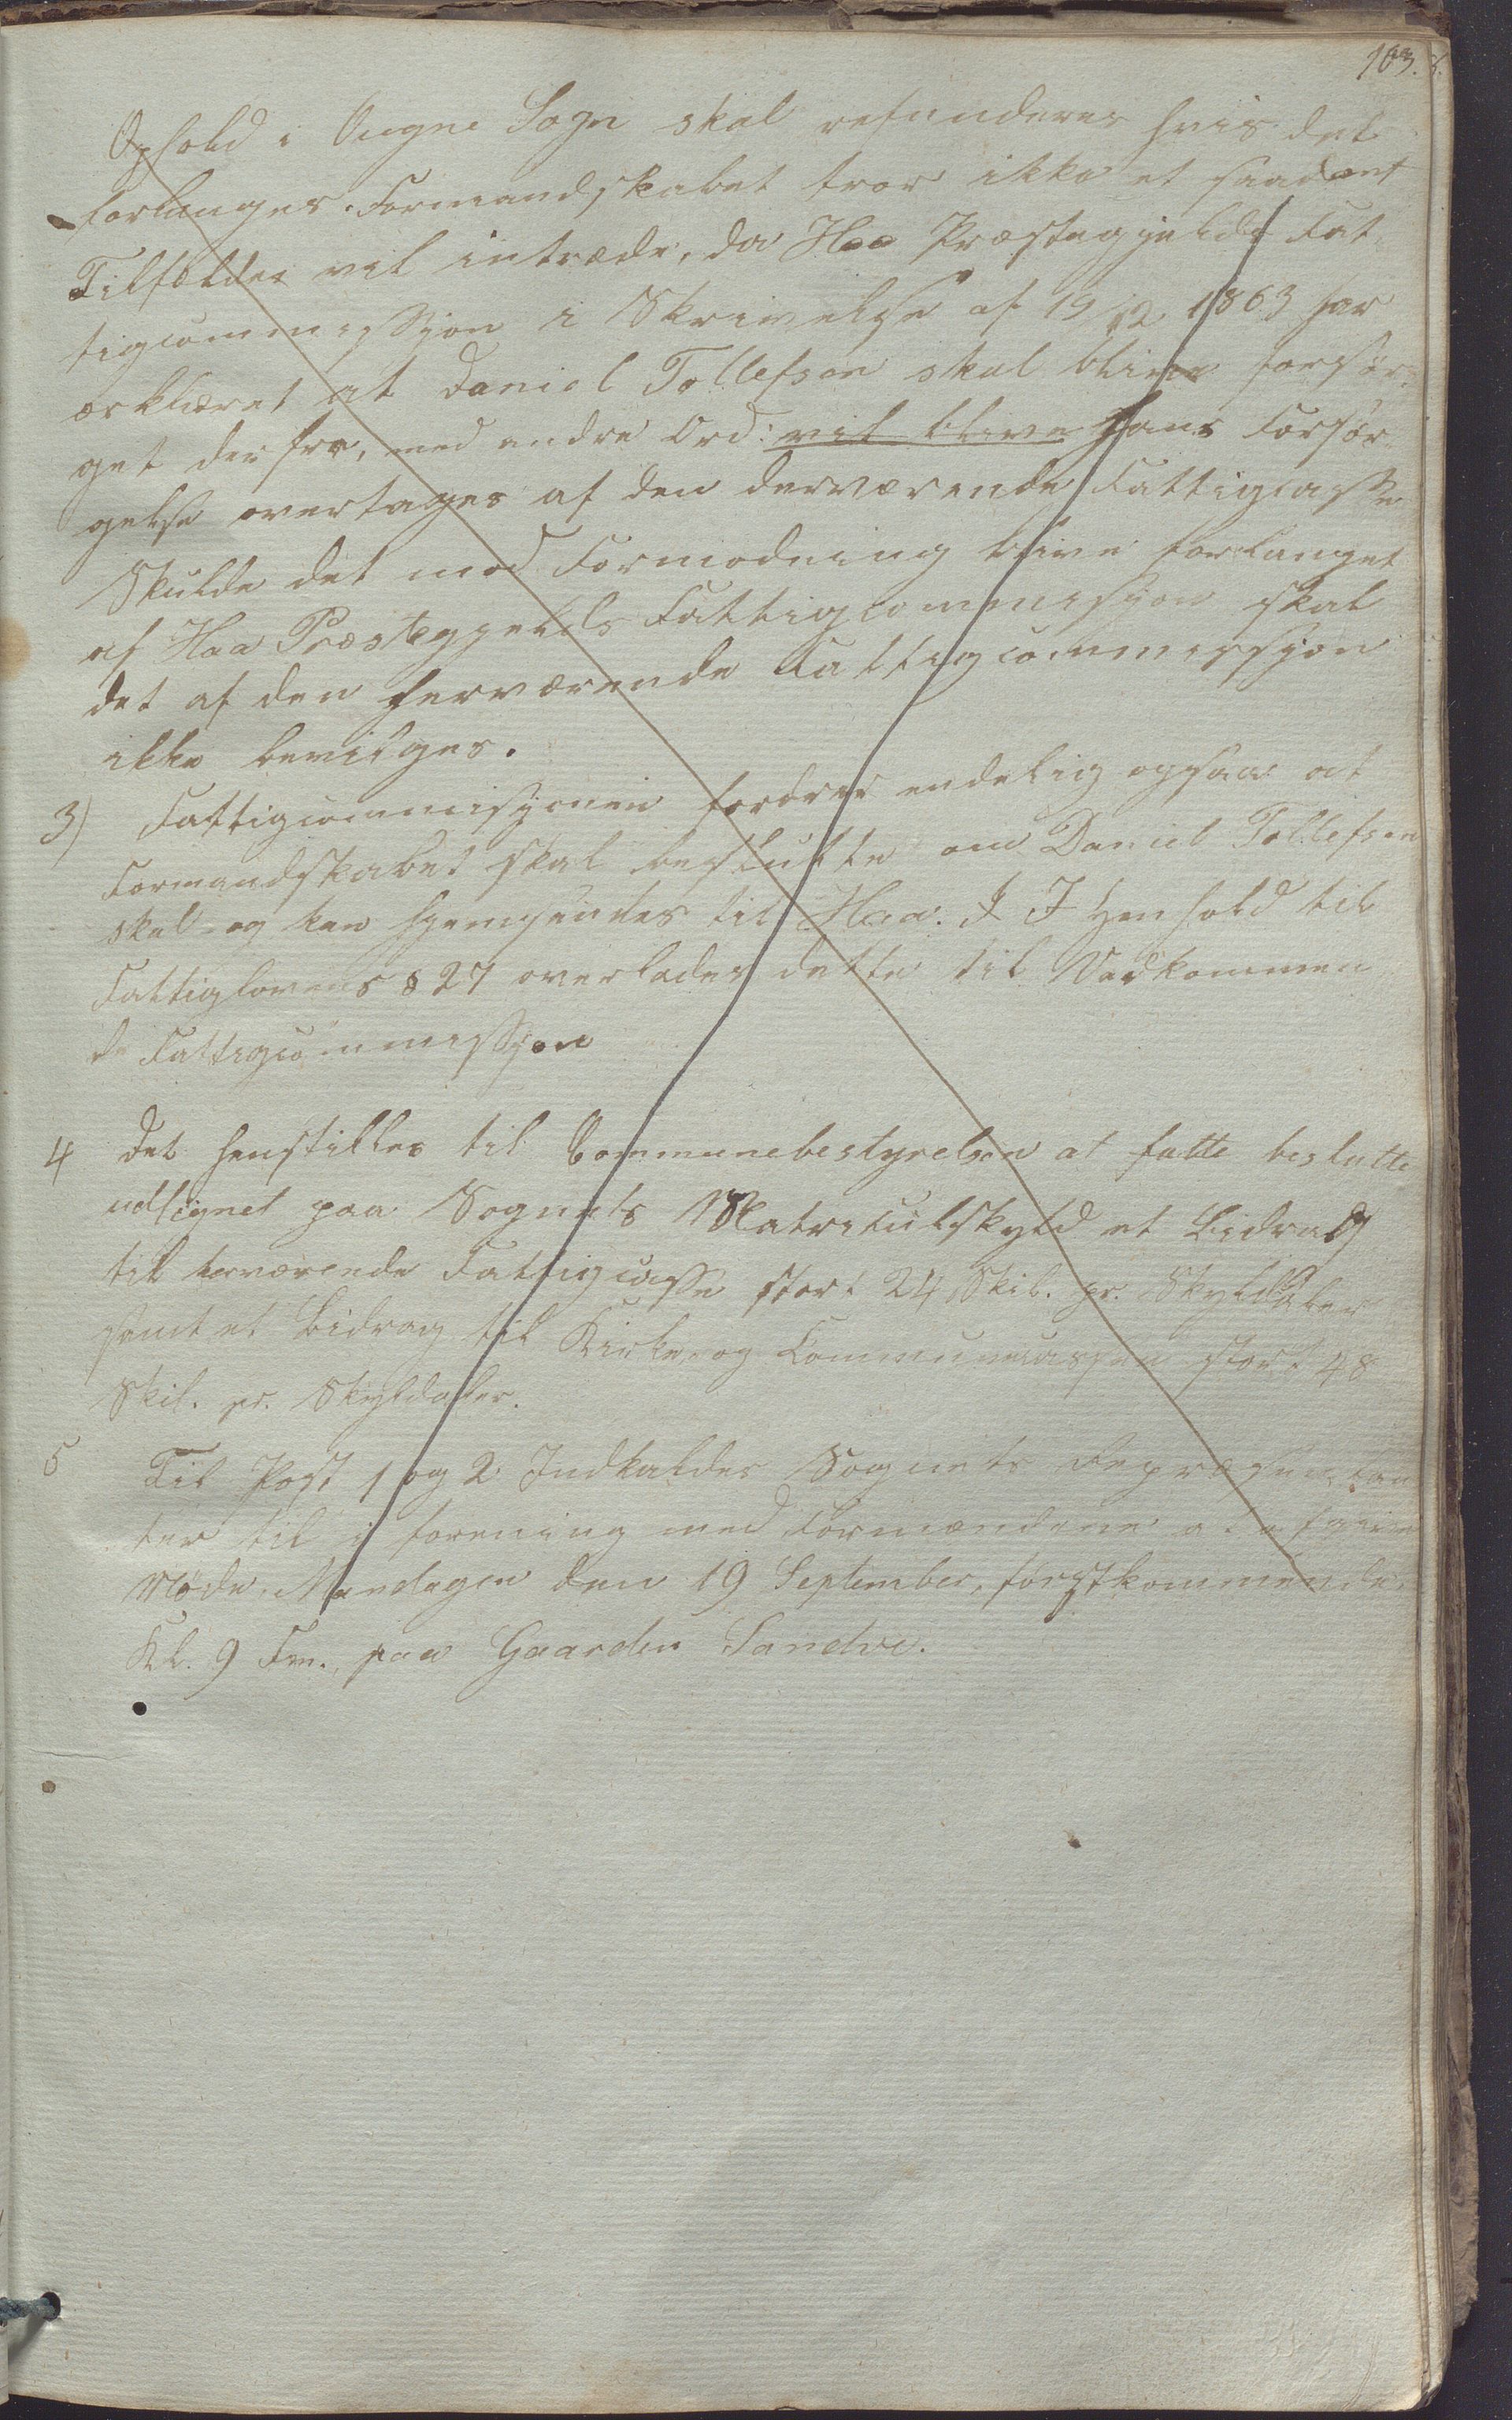 103.
Ophold i Ougne Sogn skal refunderes hvis det
forlanges. Formandskabet tror ikke et saadant
Tilfælde vil intræde, da Haa Præstegjelds Fat-
tigcommissjon i Skrivelse af 19/12 1863 har
erklæret at Daniel Tollefsen skal blive forsør-
get derfra, med andre Ord: vil blive hans Forsør-
gelse overtages af den derværende Fattigcasse
Skulde det mod Formodning blive forlanget
af Haa Præstegjelds Fattigcommissjon skal
det af den herværende Fattigcommissjon
ikke bevilges.
3) Fattigcommissjonen fordrer endelig ogsaa at
Formandskabet skal beslutte om Daniel Tollefsen
skal og kan hjemsendes til Haa. I Henhold til
Fattiglovens § 27 overlades dette til Vedkommen
de Fattigcommissjon
4 Det henstilles til Communebestyrelsen at fatte beslutte
udlignet paa Sognets Matriculskyld et Bidrag
til herværende Fattigcasse stort 24 Skil. pr. Skyldaler
samt et Bidrag til Kirke og Communecassen stort 48
Skil. pr. Skyldaler.
5 Til Post 1 og 2 Indkaldes Sognets Repræsentan
ter til i forening med Formændene at have
Møde Mandagen den 19 September, førstkommende
Kl. 9 Fm., paa Gaarden Sandve.